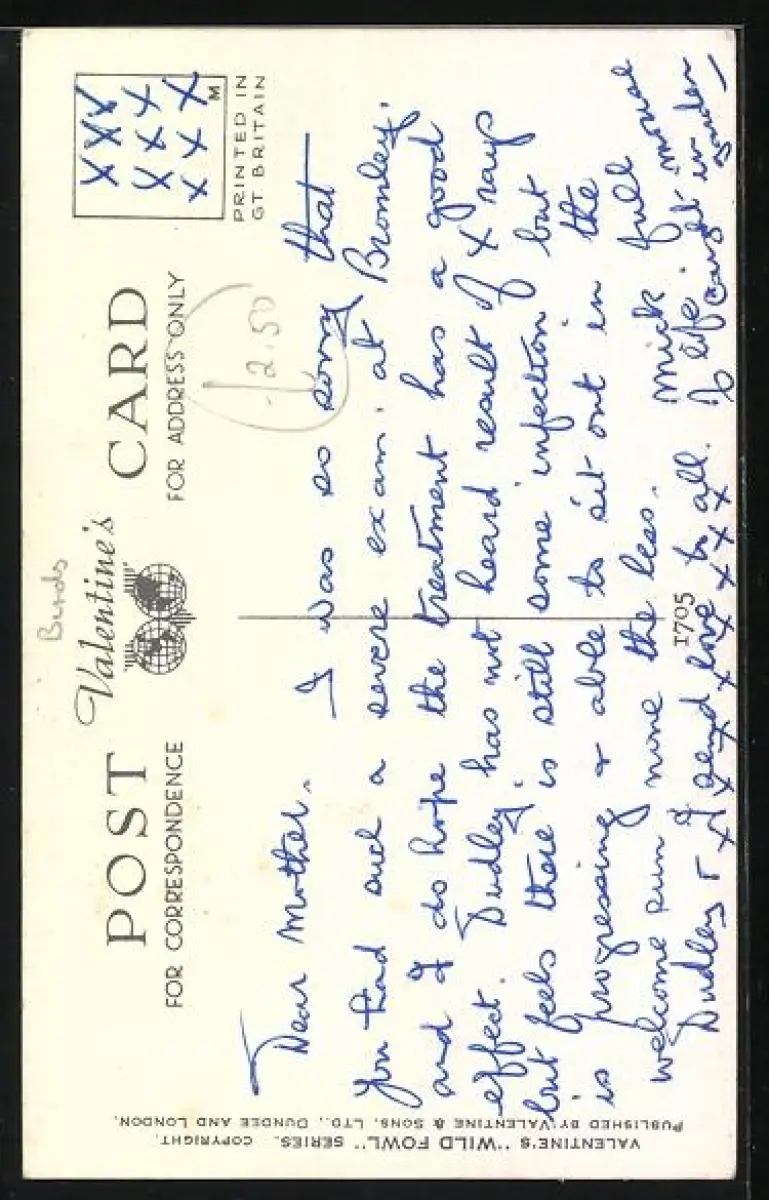 Birds
POST Valentine's CARD
FOR CORRESPONDENCE
FOR ADDRESS ONLY
M
PRINTED IN
GT BRITAIN
xxx
xxx
xxx
12.50
VALENTINE'S "WILD FOWL" SERIES. COPYRIGHT.
PUBLISHED BY VALENTINE & SONS, LTD., DUNDEE AND LONDON.
Dear Mother. I was so sorry that
you had such a severe exam. at Bromley.
and I do hope the treatment has a good
effect. Dudley has not heard result of X rays
but feels there is still some infection but
is progressing & able to sit out in the
welcome sun none the less. Mick full
of life. Caught mouse
in garden
Dudley & I send love to all.
x x x x x x x
1705